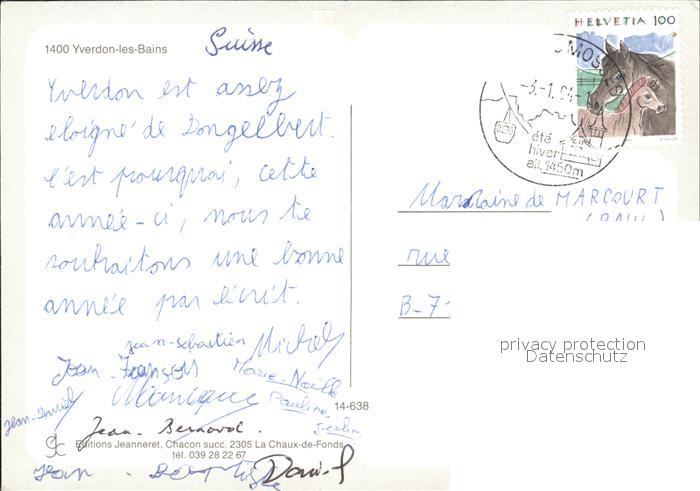 1400 Yverdon-les-Bains
Suisse
Yverdon est assez
eloigné de Dongelbert.
c'est pourquoi, cette
année-ci, nous te
souhaitons une bonne
année par écrit.
jean-sébastien Michel
Jean-François Marie-Noëlle
Monique Pauline
Jean-Daniel Julia
Jean-Bernard.
Jean-Baptiste Daniel
14-638
Editions Jeanneret, Chacon succ. 2305 La Chaux-de-Fonds
tél. 039 28 22 67
HELVETIA 100
été
hiver
alt. 1450m
de MARCOURT
rue
B-7
privacy protection
Datenschutz